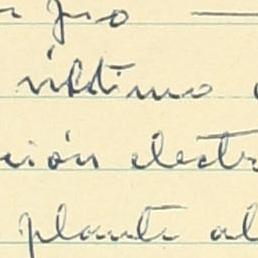 último
ción electr
plante al